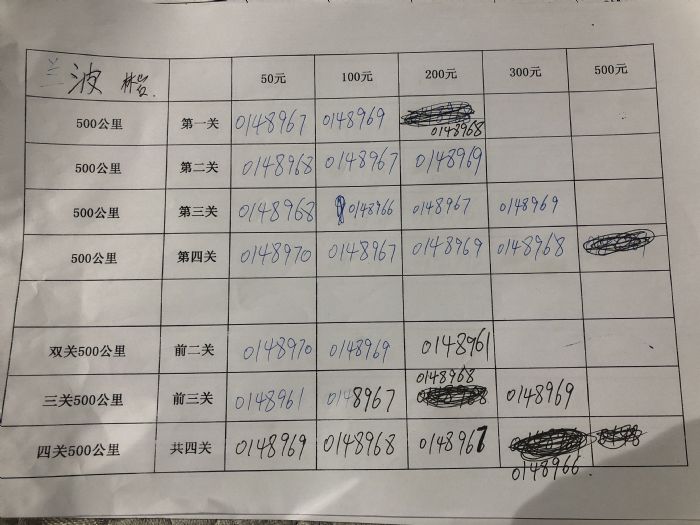 兰波 林岩. 50元 100元 200元 300元 500元
500公里 第一关 0148967 0148969 0148968
500公里 第二关 0148968 0148967 0148969
500公里 第三关 0148968 0148966 0148967 0148969
500公里 第四关 0148970 0148967 0148969 0148968
双关500公里 前二关 0148970 0148969 0148961
三关500公里 前三关 0148961 0148967 0148968 0148969
四关500公里 共四关 0148969 0148968 0148967 0148966.